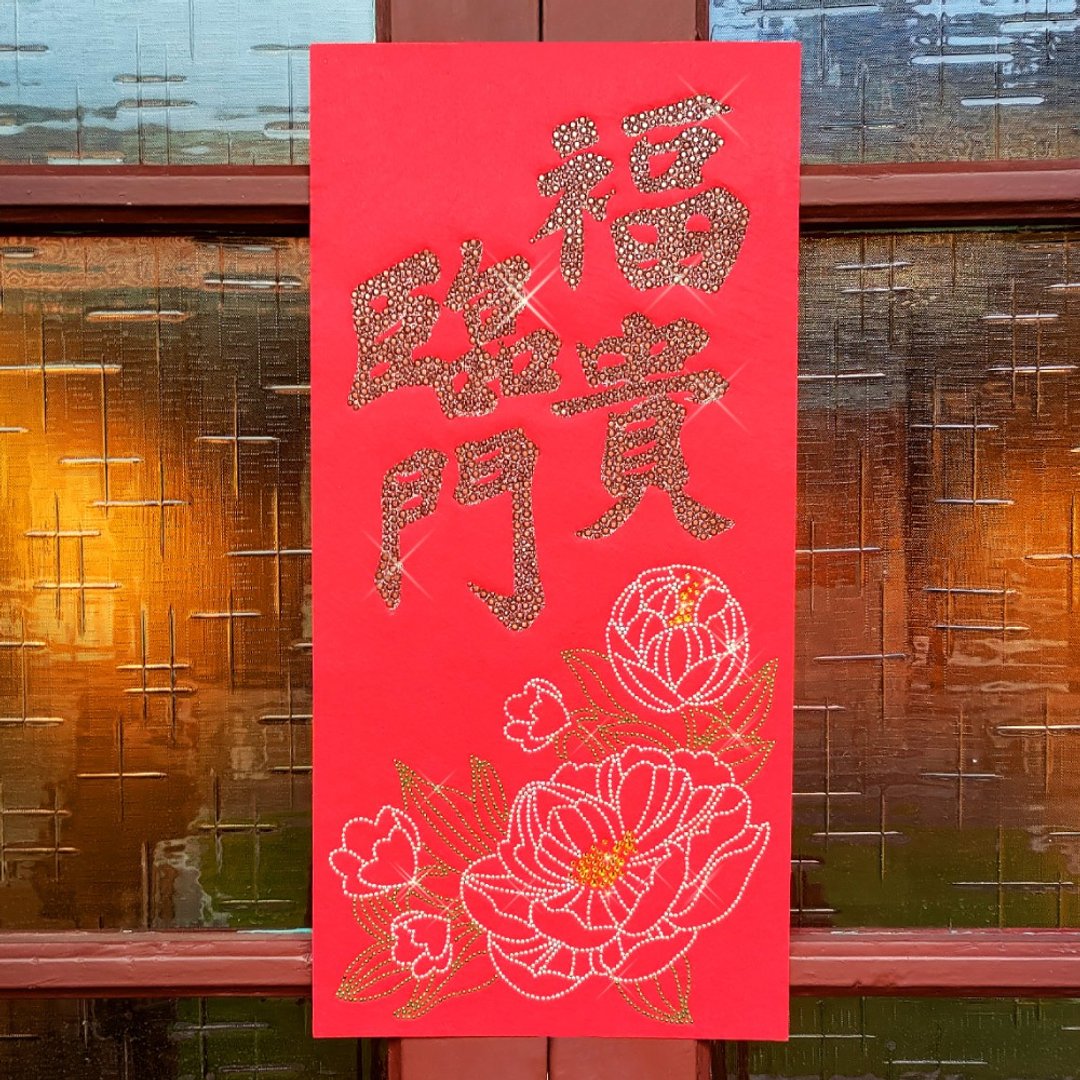 福貴
臨門